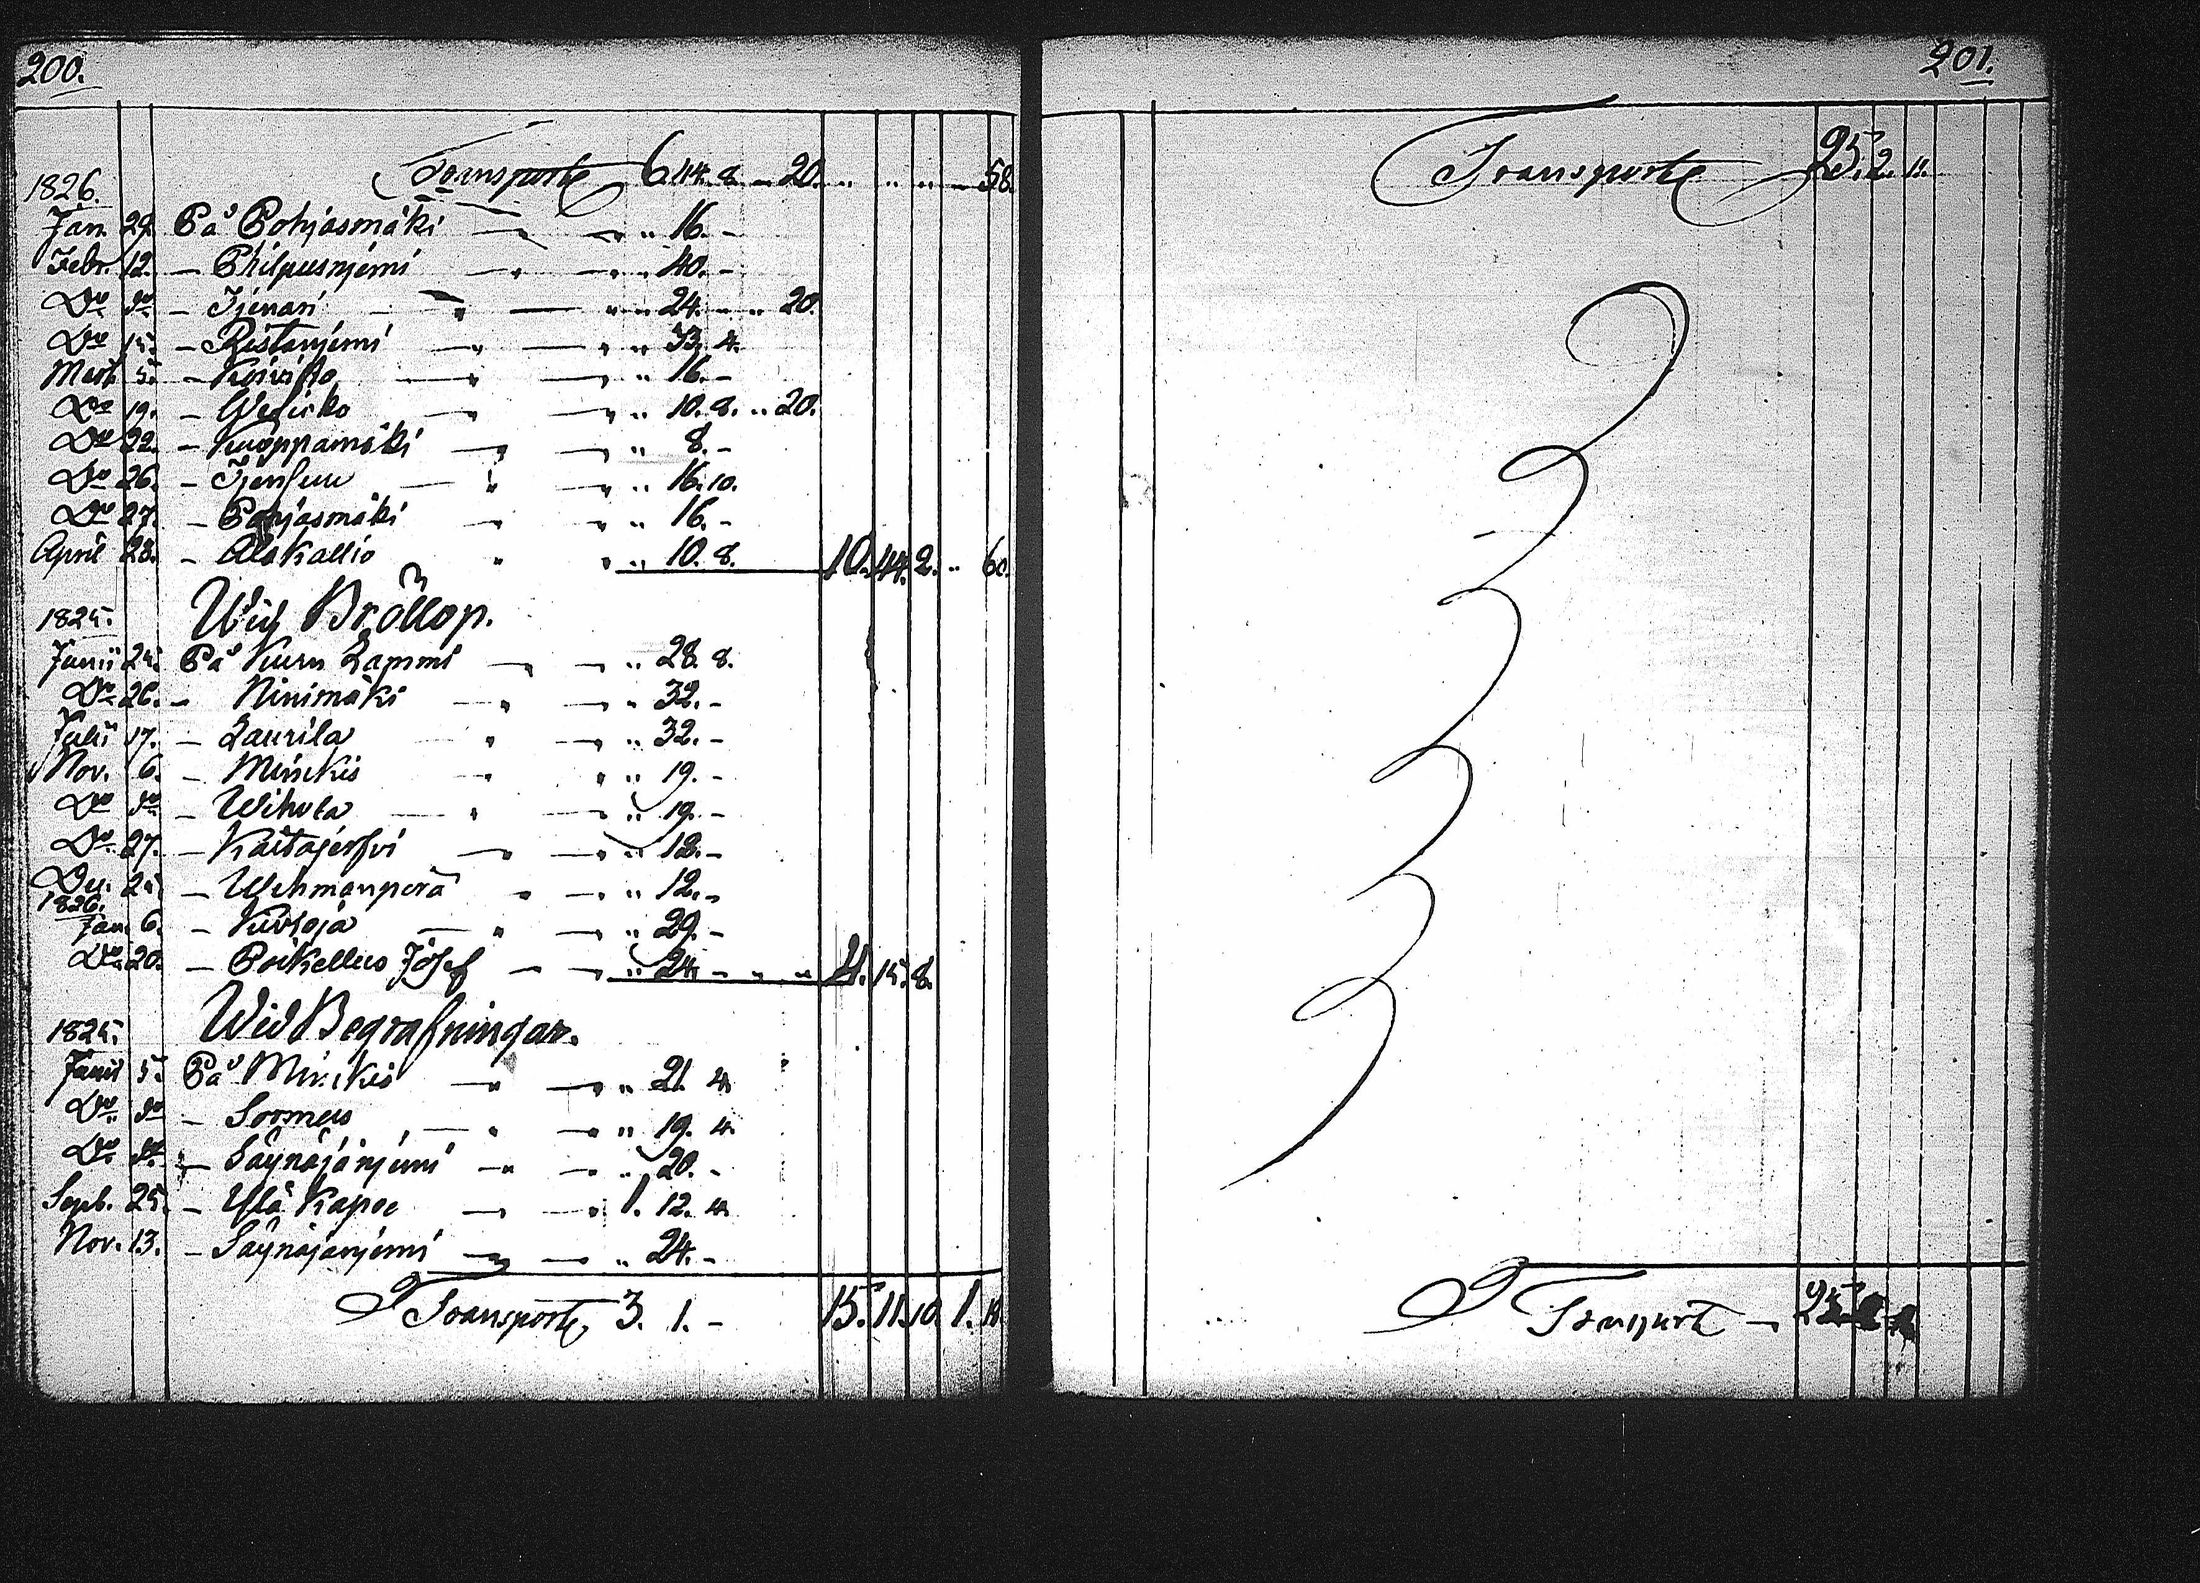 200.
Transporte 6 44. 8. „ 20. „ „ „ 58.
1826.
Jan. 29. På Pohjasmäki „ „ „ 16. –
Febr. 12. – Philpusnjemi „ „ „ 40. –
Do do – Tjenari „ „ „ 24. „ „ 20.
Do 15. – Ristanjemi „ „ „ 33. 4.
Mart. 5. – Koivisto „ „ „ 16. –
Do 19. – „ „ „ 10. 8. „ 20.
Do 22. – Kuoppamäki „ „ „ 8. –
Do 26. – „ „ „ 16. 10.
Do 27. – Pohjasmäki „ „ „ 16. –
April 28. – Alakallio „ „ „ 10. 8. 10. 44. 2. „ 60.
1825. Wid Bröllop.
Junii 24. På Kuru Lammi „ „ „ 28. 8.
Do 26. – Ninimäki „ „ 32. –
Julii 17. – Laurila „ „ „ 32. –
Nov. 6. – Minckis „ „ „ 19. –
Do do – Wihola „ „ 19. –
Do 27. – Kaitajerfvi „ „ „ 12. –
Dec. 24. – Wehmanperä „ „ „ 12. –
1826.
Jan. 6. – Kivioja „ „ „ 29. –
Do 20. – Poikellus Josef „ „ 24. – „ „ 4. 15. 8.
1825. Wid Begrafningar.
Junii 5. På Minckis „ „ „ 21. 4.
Do do – Sormus „ „ „ 19. 4.
Do do – Säynäjänjemi „ „ 20. –
Sept. 25. – Ylä Kapee „ „ 1. 12. 4.
Nov. 13. – Säynäjänjemi „ „ „ 24. –
Transporte, 3. 1. – 15. 11. 10. 1. 11.
201.
Transporte 25. 2. 11.
Transporte – 25.